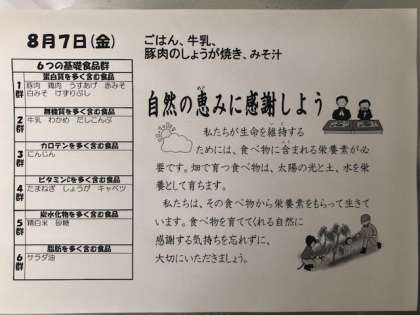 8月7日(金)
ごはん、牛乳、
豚肉のしょうが焼き、みそ汁
6つの基礎食品群
蛋白質を多く含む食品
1群
豚肉 鶏肉 うすあげ 赤みそ
白みそ けずりぶし
無機質を多く含む食品
2群
牛乳 わかめ だしこんぶ
カロテンを多く含む食品
3群
にんじん
ビタミンCを多く含む食品
4群
たまねぎ しょうが キャベツ
炭水化物を多く含む食品
5群
精白米 砂糖
脂肪を多く含む食品
6群
サラダ油
自然の恵みに感謝しよう
私たちが生命を維持する
ためには、食べ物に含まれる栄養素が必
要です。畑で育つ食べ物は、太陽の光と土、水を栄
養として育ちます。
私たちは、その食べ物から栄養素をもらって生きて
います。食べ物を育ててくれる自然に
感謝する気持ちを忘れずに、
大切にいただきましょう。